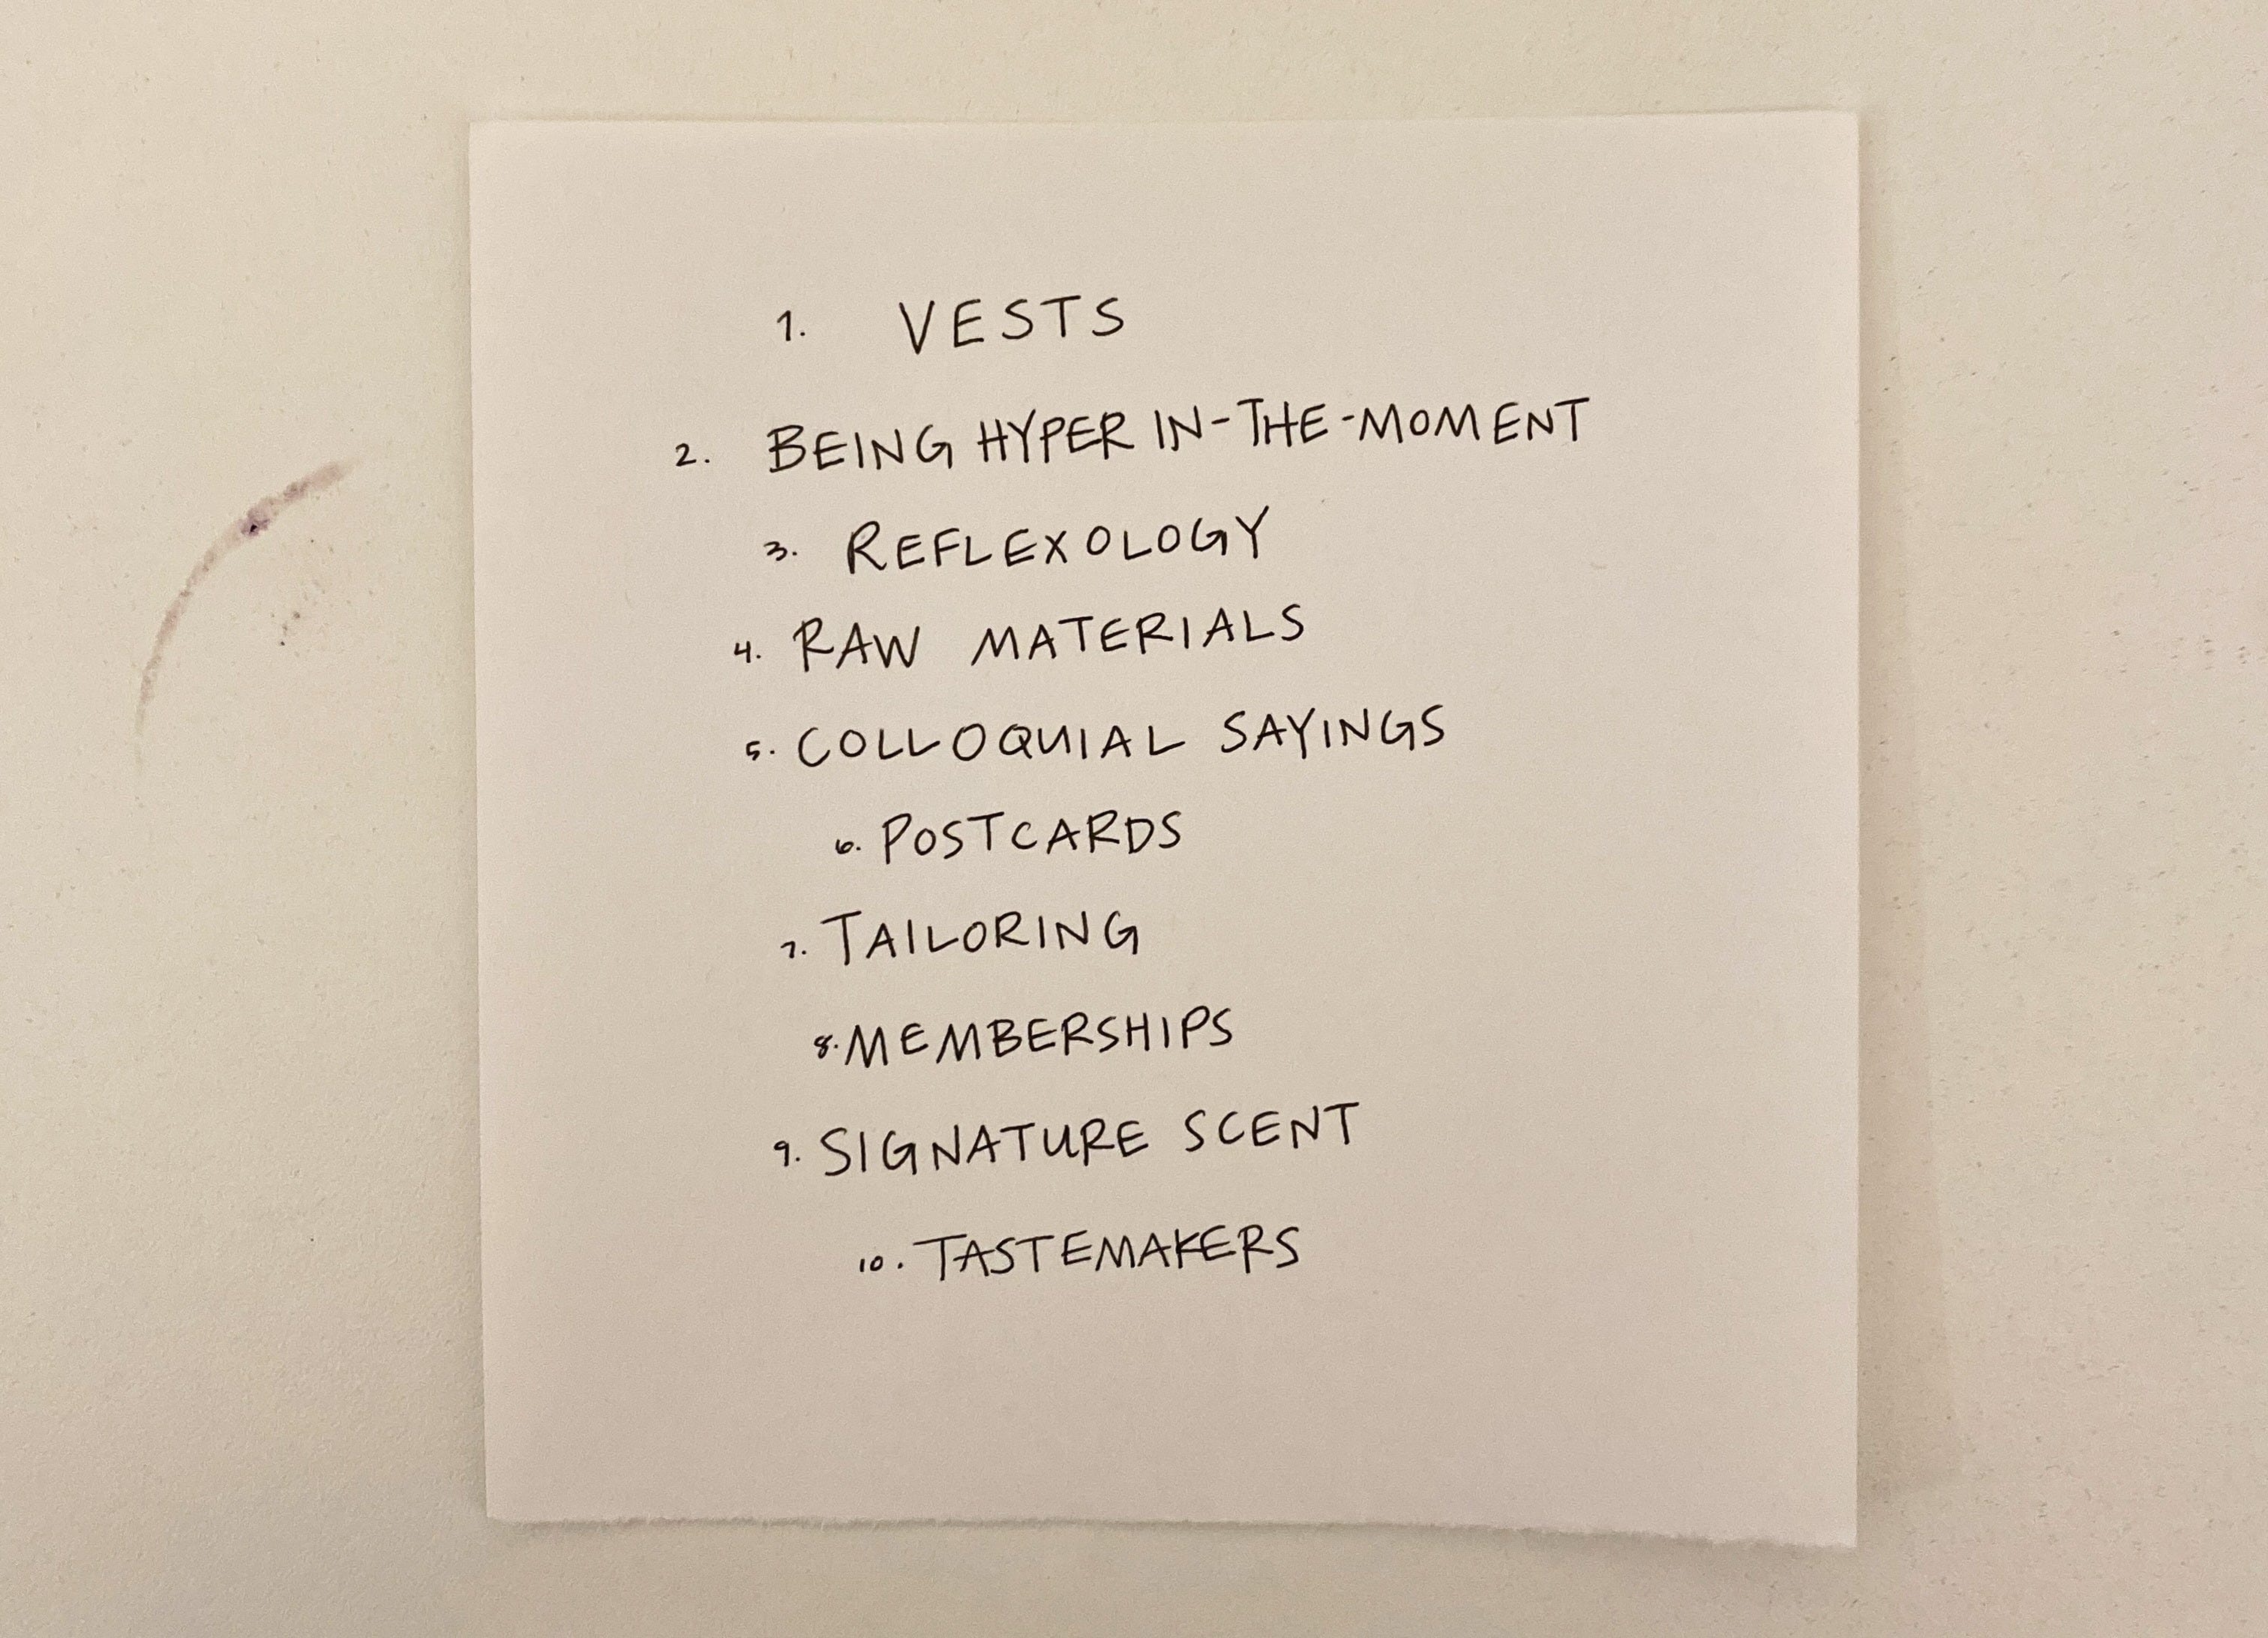 1. VESTS
2. BEING HYPER IN-THE-MOMENT
3. REFLEXOLOGY
4. RAW MATERIALS
5. COLLOQUIAL SAYINGS
6. POSTCARDS
7. TAILORING
8. MEMBERSHIPS
9. SIGNATURE SCENT
10. TASTEMAKERS